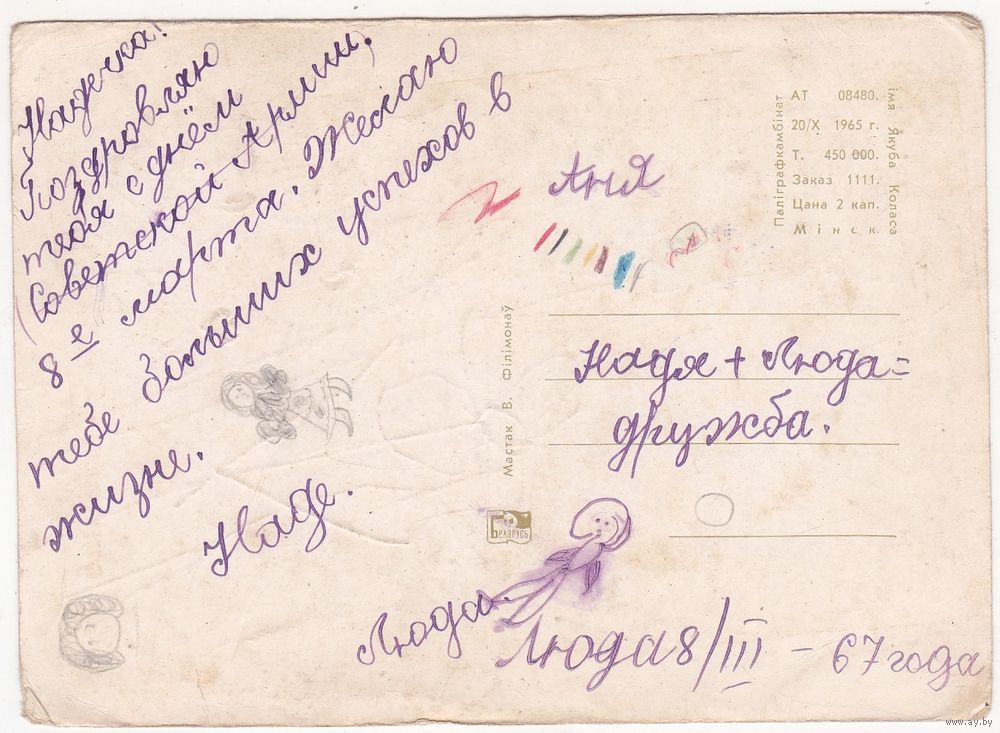 Надечка!
Поздровляю
тебя с днём
Советской Армии,
8е марта. Желаю
тебе больших успехов в
жизне.
Наде.
Люда.
Аня
Надя + Люда =
дружба.
Люда 8/III – 67 года
Мастак В. Філімонаў
БЕЛАРУСЬ
Паліграфкамбінат
імя Якуба Коласа
АТ 08480.
20/X 1965 г.
Т. 450 000.
Заказ 1111.
Цана 2 кап.
Мінск
www.ay.by